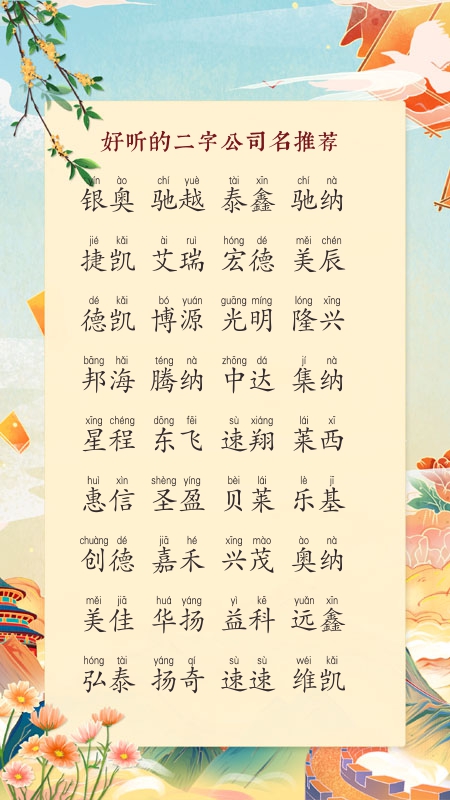 好听的二字公司名推荐
yín ào chí yuè tài xīn chí nà
银奥 驰越 泰鑫 驰纳
jié kǎi ài ruì hóng dé měi chén
捷凯 艾瑞 宏德 美辰
dé kǎi bó yuán guāng míng lóng xīng
德凯 博源 光明 隆兴
bāng hǎi téng nà zhōng dá jí nà
邦海 腾纳 中达 集纳
xīng chéng dōng fēi sù xiáng lái xī
星程 东飞 速翔 莱西
huì xìn shèng yíng bèi lái lè jī
惠信 圣盈 贝莱 乐基
chuàng dé jiā hé xīng mào ào nà
创德 嘉禾 兴茂 奥纳
měi jiā huá yáng yì kē yuǎn xīn
美佳 华扬 益科 远鑫
hóng tài yáng qí sù sù wéi kǎi
弘泰 扬奇 速速 维凯